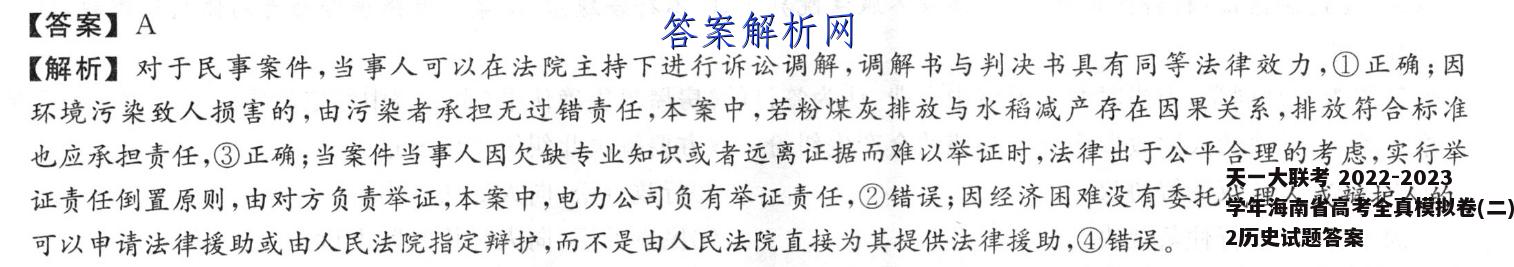 【答案】A
答案解析网
【解析】对于民事案件,当事人可以在法院主持下进行诉讼调解,调解书与判决书具有同等法律效力,①正确;因
环境污染致人损害的,由污染者承担无过错责任,本案中,若粉煤灰排放与水稻减产存在因果关系,排放符合标准
也应承担责任,③正确;当案件当事人因欠缺专业知识或者远离证据而难以举证时,法律出于公平合理的考虑,实行举
证责任倒置原则,由对方负责举证,本案中,电力公司负有举证责任,②错误;因经济困难没有委托代理人或辩护人的,
可以申请法律援助或由人民法院指定辩护,而不是由人民法院直接为其提供法律援助,④错误。
天一大联考 2022-2023
学年海南省高考全真模拟卷(二)
2历史试题答案